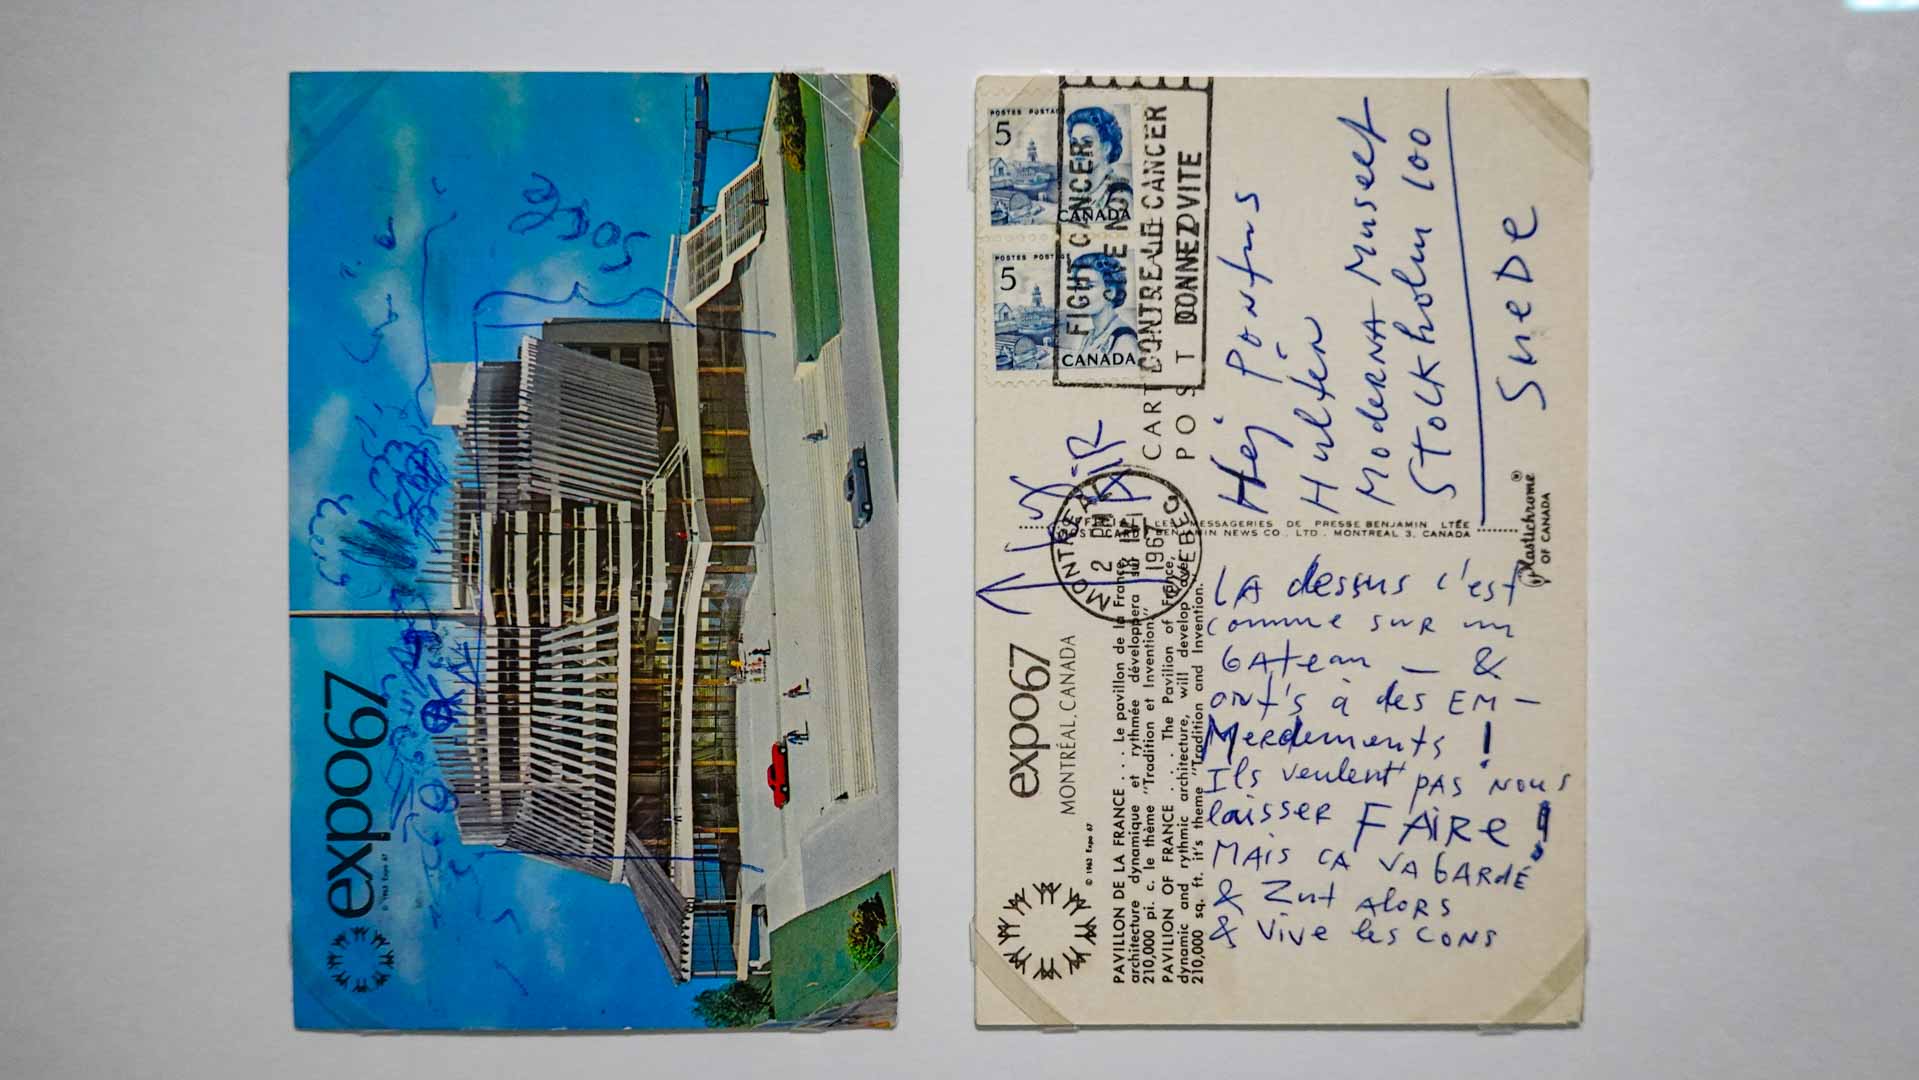 expo67
© 1963 Expo 67
expo67
MONTRÉAL, CANADA
© 1963 Expo 67
PAVILLON DE LA FRANCE . . . Le pavillon de la France,
architecture dynamique et rythmée développera sur
210,000 pi. c. le thème "Tradition et Invention."
PAVILION OF FRANCE . . . . The Pavilion of France,
dynamic and rythmic architecture, will develop over
210,000 sq. ft. it's theme "Tradition and Invention."
POSTES POSTAGE
5
CANADA
POSTES POSTAGE
5
CANADA
FIGHT CANCER
GIVE NOW
CONTRE LE CANCER
DONNEZ VITE
MONTREAL
2 PM
18
1967
QUEBEC
AiR
CART
POST
LES MESSAGERIES DE PRESSE BENJAMIN LTÉE
BENJAMIN NEWS CO., LTD. MONTREAL 3, CANADA
Plastichrome®
OF CANADA
Hej Pontus
Hulten
Moderna Museet
Stockholm 100
SueDe
LA dessus c'est
comme sur un
GAteau — &
ont's à des EM-
Merdements !
Ils veulent pas nous
laisser FAiRe !
MAis CA VA bARdé
& Zut Alors
& Vive les cons